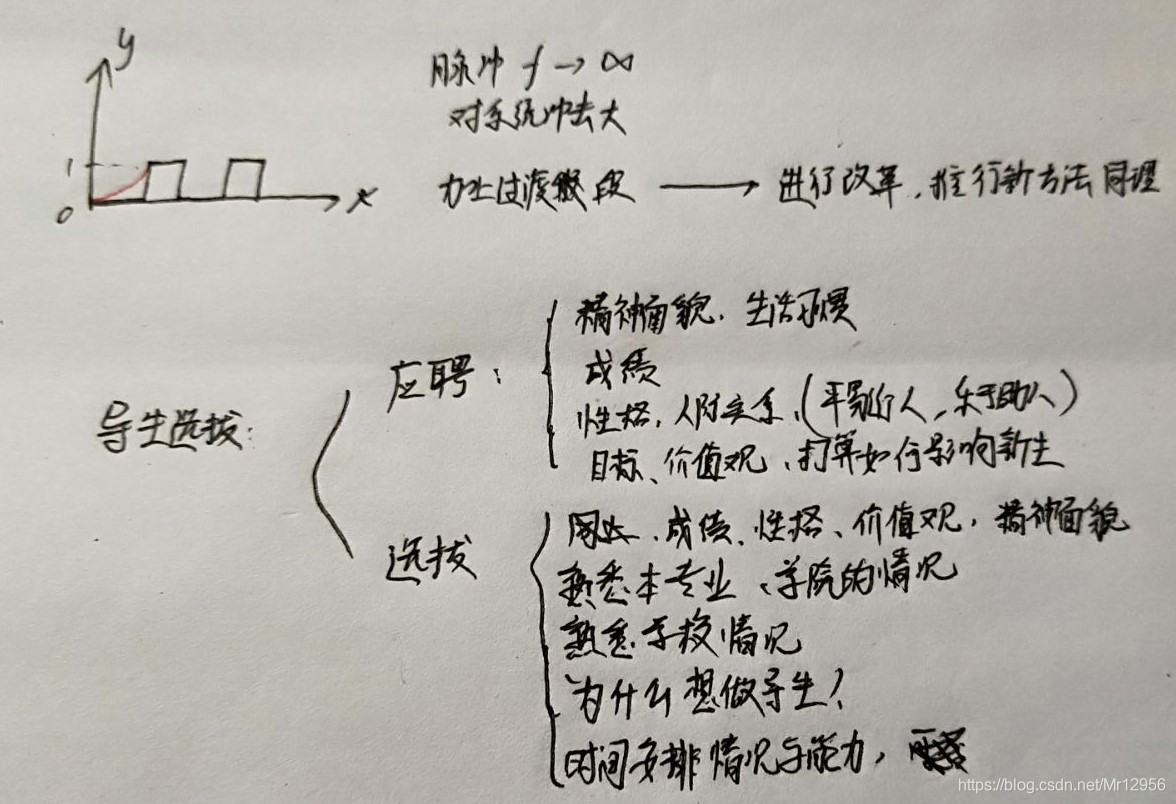 y
脉冲 f → ∞
对系统冲击大
1
0
x
加上过渡阶段 → 进行改革，推行新方法同理
导生选拔：
应聘：
精神面貌、生活习惯
成绩
性格，人际关系、（平易近人，乐于助人）
目标、价值观、打算如何影响新生
选拔
同上、成绩、性格、价值观，精神面貌
熟悉本专业、学院的情况
熟悉学校情况
为什么想做导生？
时间安排情况与能力，
https://blog.csdn.net/Mr12956